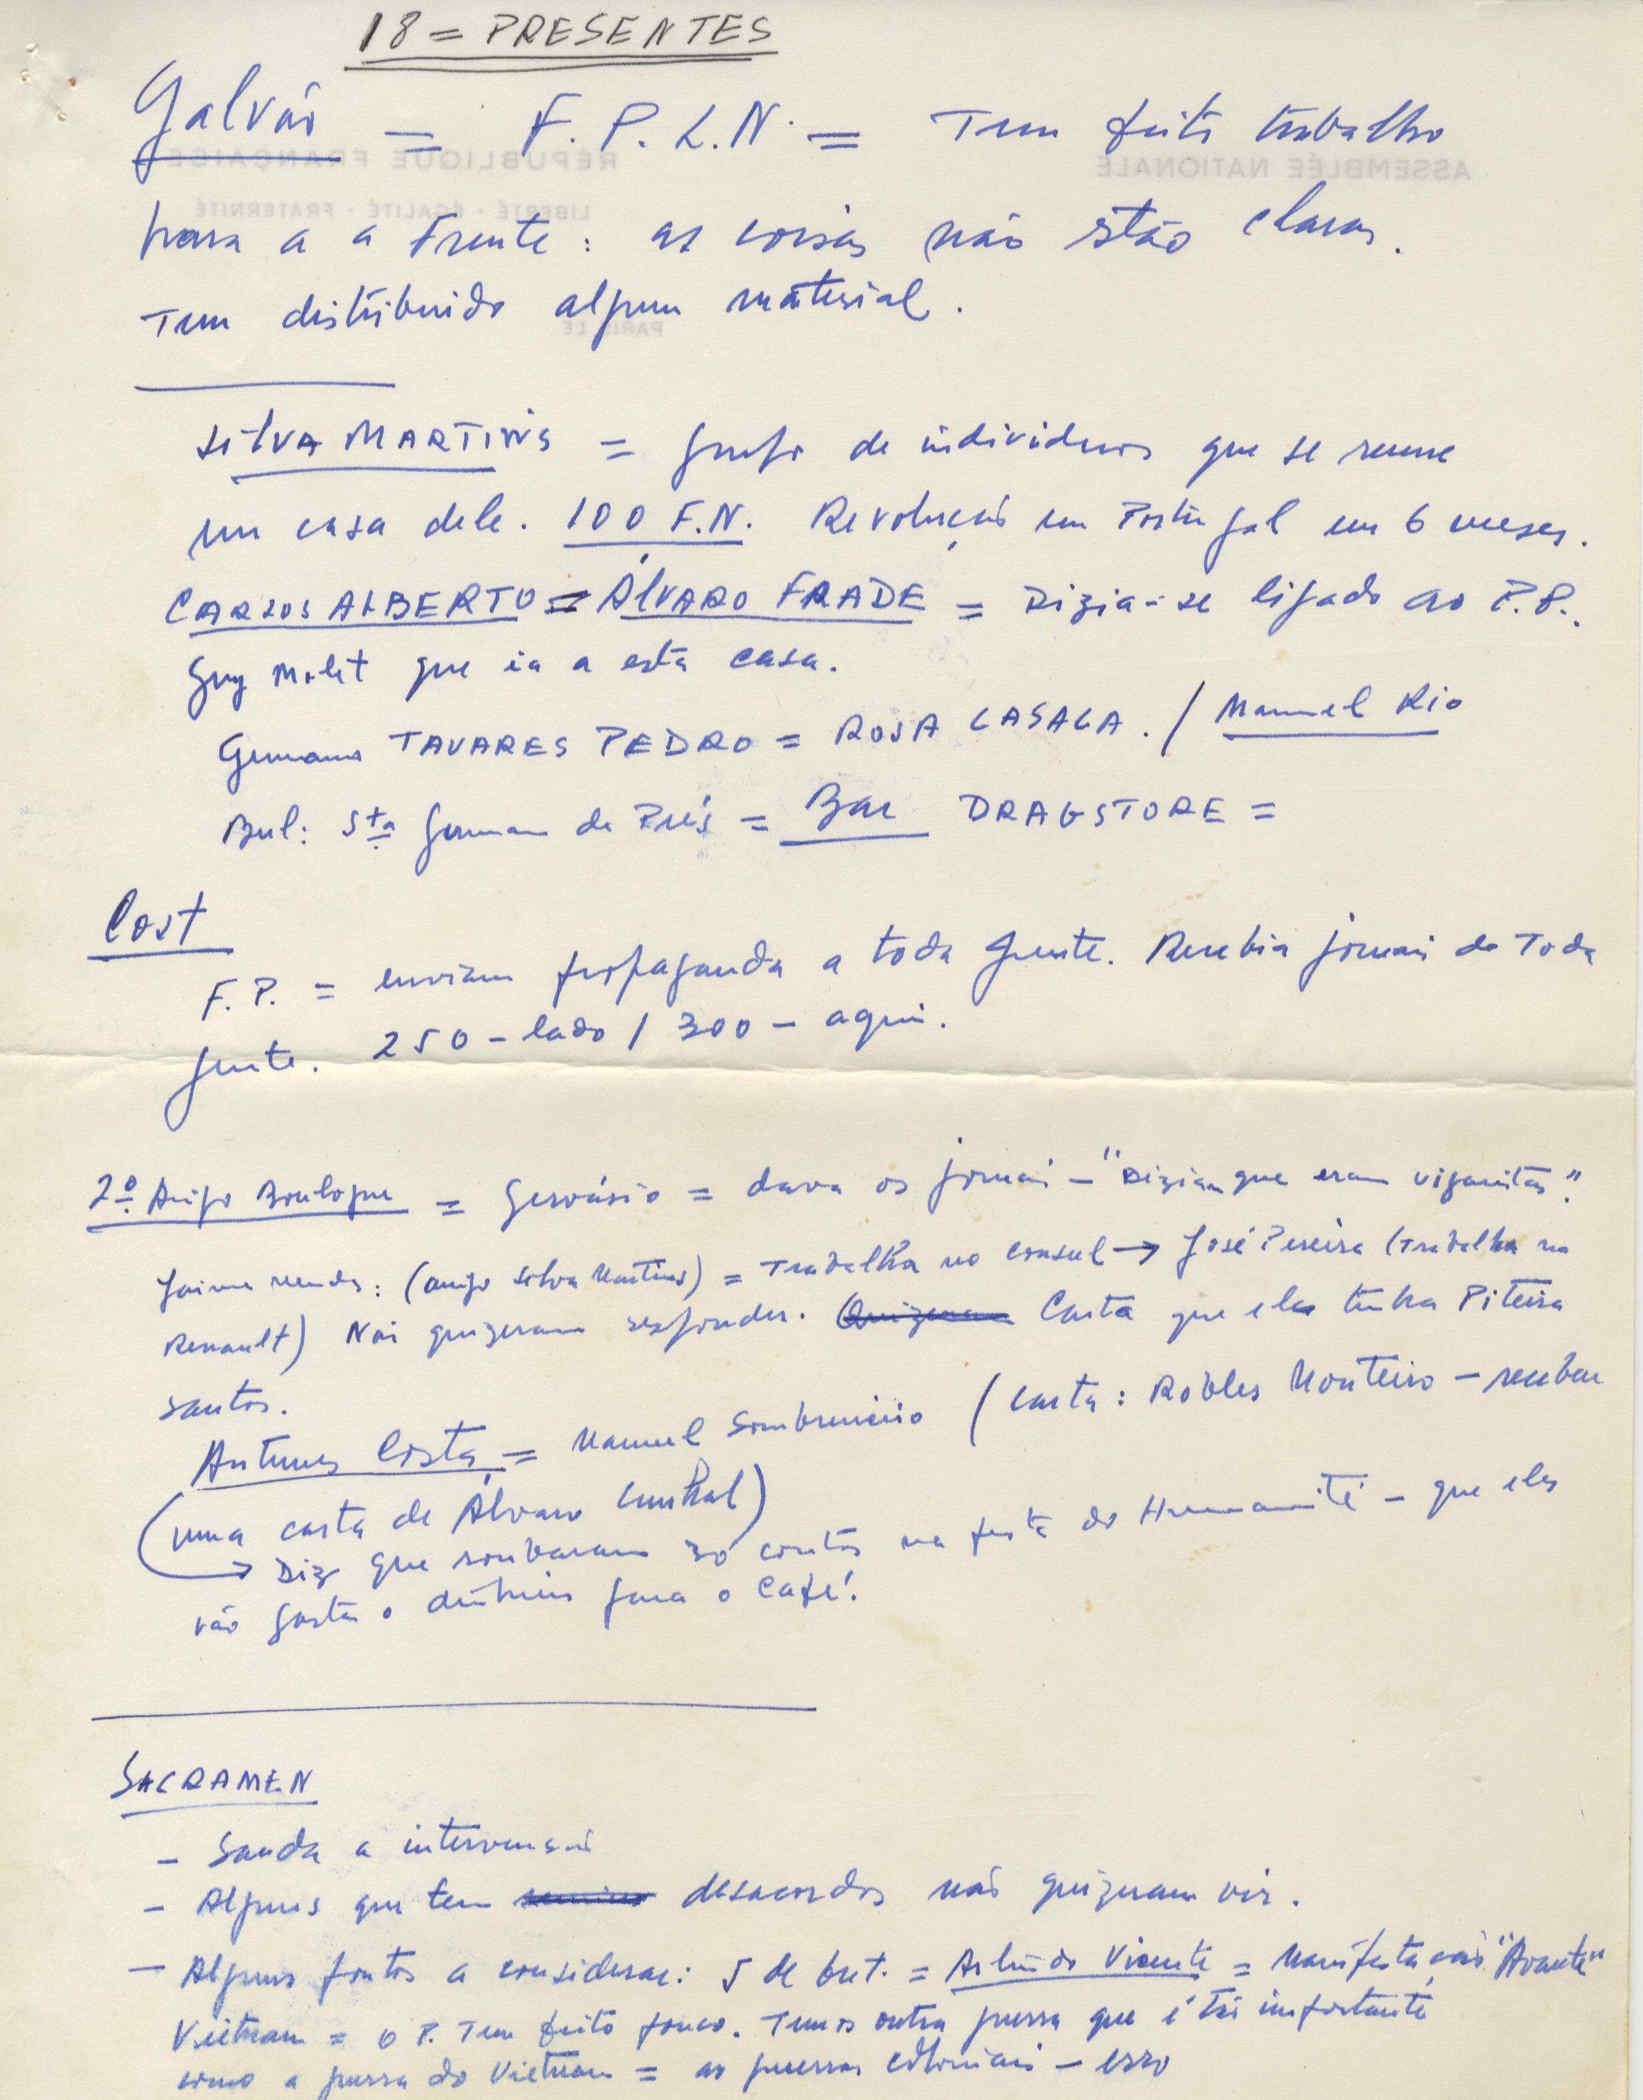 18 = PRESENTES
Galvão = F.P.L.N. = Tem feito trabalho
RÉPUBLIQUE FRANÇAISE
ASSEMBLÉE NATIONALE
LIBERTÉ - ÉGALITÉ - FRATERNITÉ
para a a Frente: as coisas não stão claras.
Tem distribuido algum material.
PARIS LE
SILVA MARTINS = grupo de individuos que se reune
em casa dele. 100 F.N. Revolução em Portugal em 6 meses.
CARLOS ALBERTO = ÁLVARO FRADE = Dizia-se ligado ao P.P.
Guy Molet que ia a esta casa.
Germano TAVARES PEDRO = ROSA CASACA. / Manuel Rio
Bul: Sta German de Prés = Bar DRAGSTORE =
Cost
F.P. = enviam propaganda a toda gente. Recebia jornais de Toda
gente. 250 - lado / 300 - aqui.
2º Amigo Boulogne = Gervásio = dava os jornais - "Diziam que eram vigaristas".
Jaime Mendes: (amigo Silva Martins) = Trabalha no consul → José Pereira (Trabalha na
Renault) Não quizeram responder. Quizeram Carta que eles tinha Piteira
Santos.
Antunes Costa = Manuel Sombreireiro / Carta: Robles Monteiro - recebeu
(uma carta de Álvaro Cunhal)
→ Diz que roubaram 30 contos na festa do Humanité - que eles
vão gastar o dinheiro para o Café!
SACRAMEN
- Sauda a intervensão
- Alguns que tem desacordos não quizeram vir.
- Alguns pontos a considerar: 5 de Out. = Arlindo Vicente = Manifestação "Avante"
Vietnam = o P. Tem feito pouco. Temos outra guerra que é tão importante
como a guerra do Vietnam = as guerras coloniais - erro